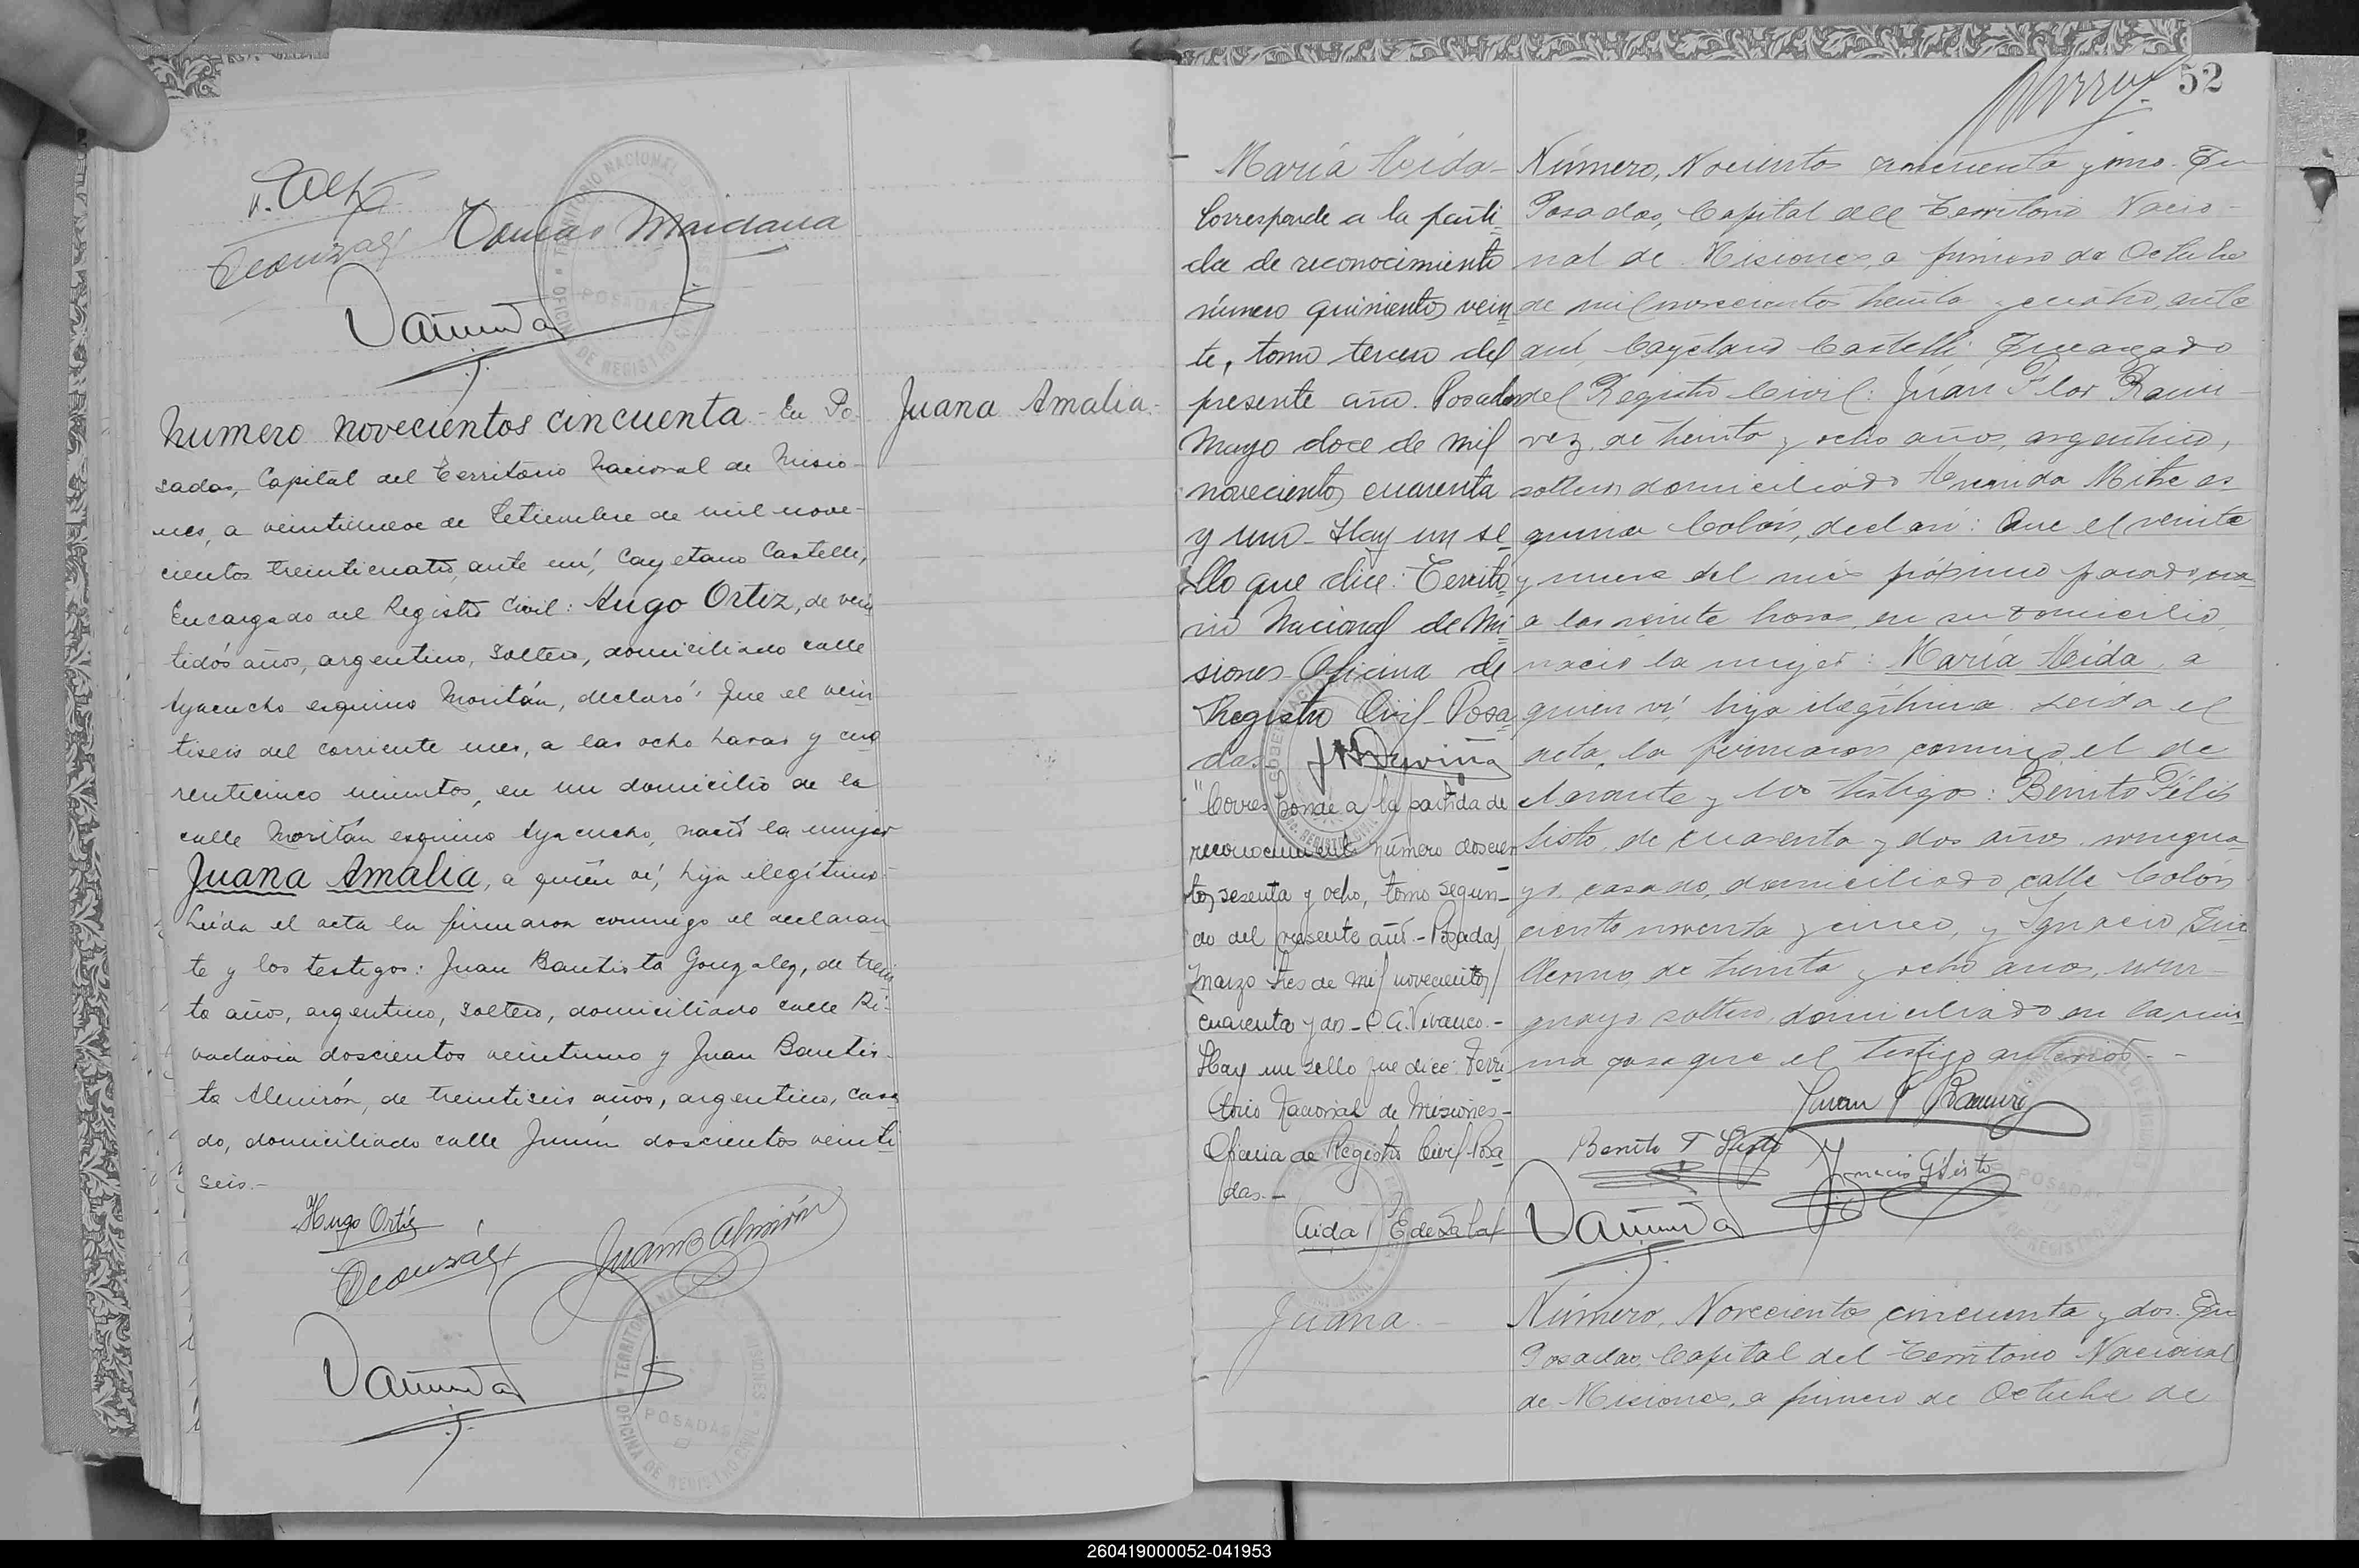 Tomas Maidana
Numero novecientos cincuenta - En Po-
sadas, Capital del Territorio Nacional de Misio-
nes, a veintinueve de Setiembre de mil nove-
cientos treinticuatro, ante mí, Cayetano Castelli,
Encargado del Registro Civil: Hugo Ortiz, de vein
tidós años, argentino, soltero, domiciliado calle
Ayacucho esquina Moritán, declaró: Que el vein
tiseis del corriente mes, a las ocho horas y cua
renticinco minutos, en un domicilio de la
calle Moritán esquina Ayacucho, nació la mujer
Juana Amalia, a quién ví, hija ilegítima.
Leída el acta la firmaron conmigo el declaran
te y los testigos: Juan Bautista Gonzalez, de trein
ta años, argentino, soltero, domiciliado calle Ri-
vadavia doscientos veintiuno y Juan Bautis-
ta Almirón, de treintiseis años, argentino, casa
do, domiciliado calle Junín doscientos veinti
seis.-
Hugo Ortiz
Juan B Almirón
TERRITORIO NACIONAL DE MISIONES
OFICINA DE REGISTRO CIVIL
POSADAS
Juana Amalia.-
52
María Aida-
Corresponde a la parti
da de reconocimiento
número quinientos vein
te, tomo tercero del
presente año. Posadas
Mayo doce de mil
novecientos cuarenta
y uno - Hay un se
llo que dice: Territo
rio Nacional de Mi
siones - Oficina de
Registro Civil - Posa
das
"Corresponde a la partida de
reconocimiento número doscien
tos sesenta y ocho, tomo segun-
do del presente año.- Posadas,
Marzo tres de mil novecientos
cuarenta y dos - C. A. Vivanco.-
Hay un sello que dice: Terri
torio Nacional de Misiones-
Oficina de Registro Civil - Posa
das.-
Aida E de
Juana.-
Número, Novecientos cincuenta y uno. En
Posadas, Capital del Territorio Nacio-
nal de Misiones, a primero de Octubre
de mil novecientos treinta y cuatro, ante
mí, Cayetano Castelli, Encargado
del Registro Civil: Juan Flor Rami-
rez, de treinta y ocho años, argentino,
soltero, domiciliado Avenida Mitre es
quina Colón, declaró: Que el veinte
y nueve del mes próximo pasado,
a las veinte horas, en su domicilio,
nació la mujer: María Aida, a
quien ví, hija ilegítima. Leída el
acta, la firmaron conmigo, el de
clarante y los testigos: Benito Félix
Sisto, de cuarenta y dos años, urugua
yo, casado, domiciliado calle Colón
ciento noventa y cinco, y Ignacio Gui
llermo, de treinta y ocho años, uru-
guayo, soltero, domiciliado en la mis
ma casa que el testigo anterior.-
Juan F Ramirez
Benito F Sisto
Ignacio G Sisto
Número, Novecientos cincuenta y dos. En
Posadas, Capital del Territorio Nacional
de Misiones, a primero de Octubre de
260419000052-041953